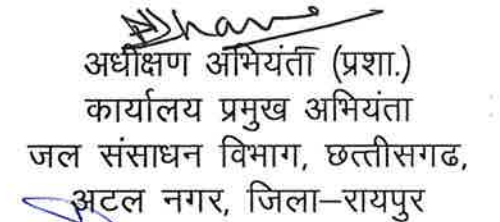 अधीक्षण अभियंता (प्रशा.)
कार्यालय प्रमुख अभियंता
जल संसाधन विभाग, छत्तीसगढ,
अटल नगर, जिला–रायपुर